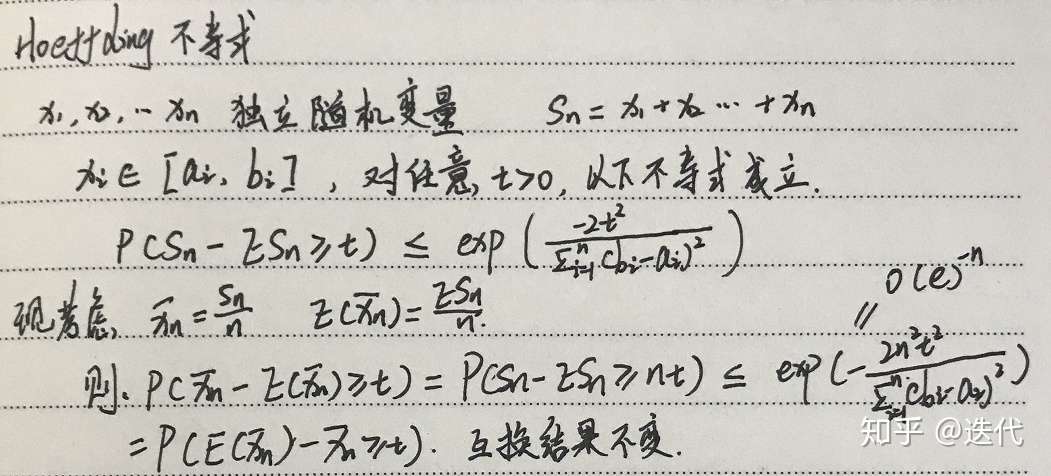 Hoeffding 不等式
x₁, x₂, ... xₙ 独立随机变量 Sₙ = x₁ + x₂ ... + xₙ
xᵢ ∈ [aᵢ, bᵢ], 对任意, t>0, 以下不等式成立.
P(Sₙ - ESₙ ≥ t) ≤ exp(\frac{-2t²}{Σᵢ₌₁ⁿ(bᵢ-aᵢ)²})
O(e)⁻ⁿ
现考虑, x̄ₙ = \frac{Sₙ}{n} E(x̄ₙ) = \frac{ESₙ}{n}. //
则. P(x̄ₙ - E(x̄ₙ) ≥ t) = P(Sₙ - ESₙ ≥ nt) ≤ exp(-\frac{2n²t²}{Σᵢ₌₁ⁿ(bᵢ-aᵢ)²})
= P(E(x̄ₙ) - x̄ₙ ≥ t). 互换结果不变.
知乎 @迭代